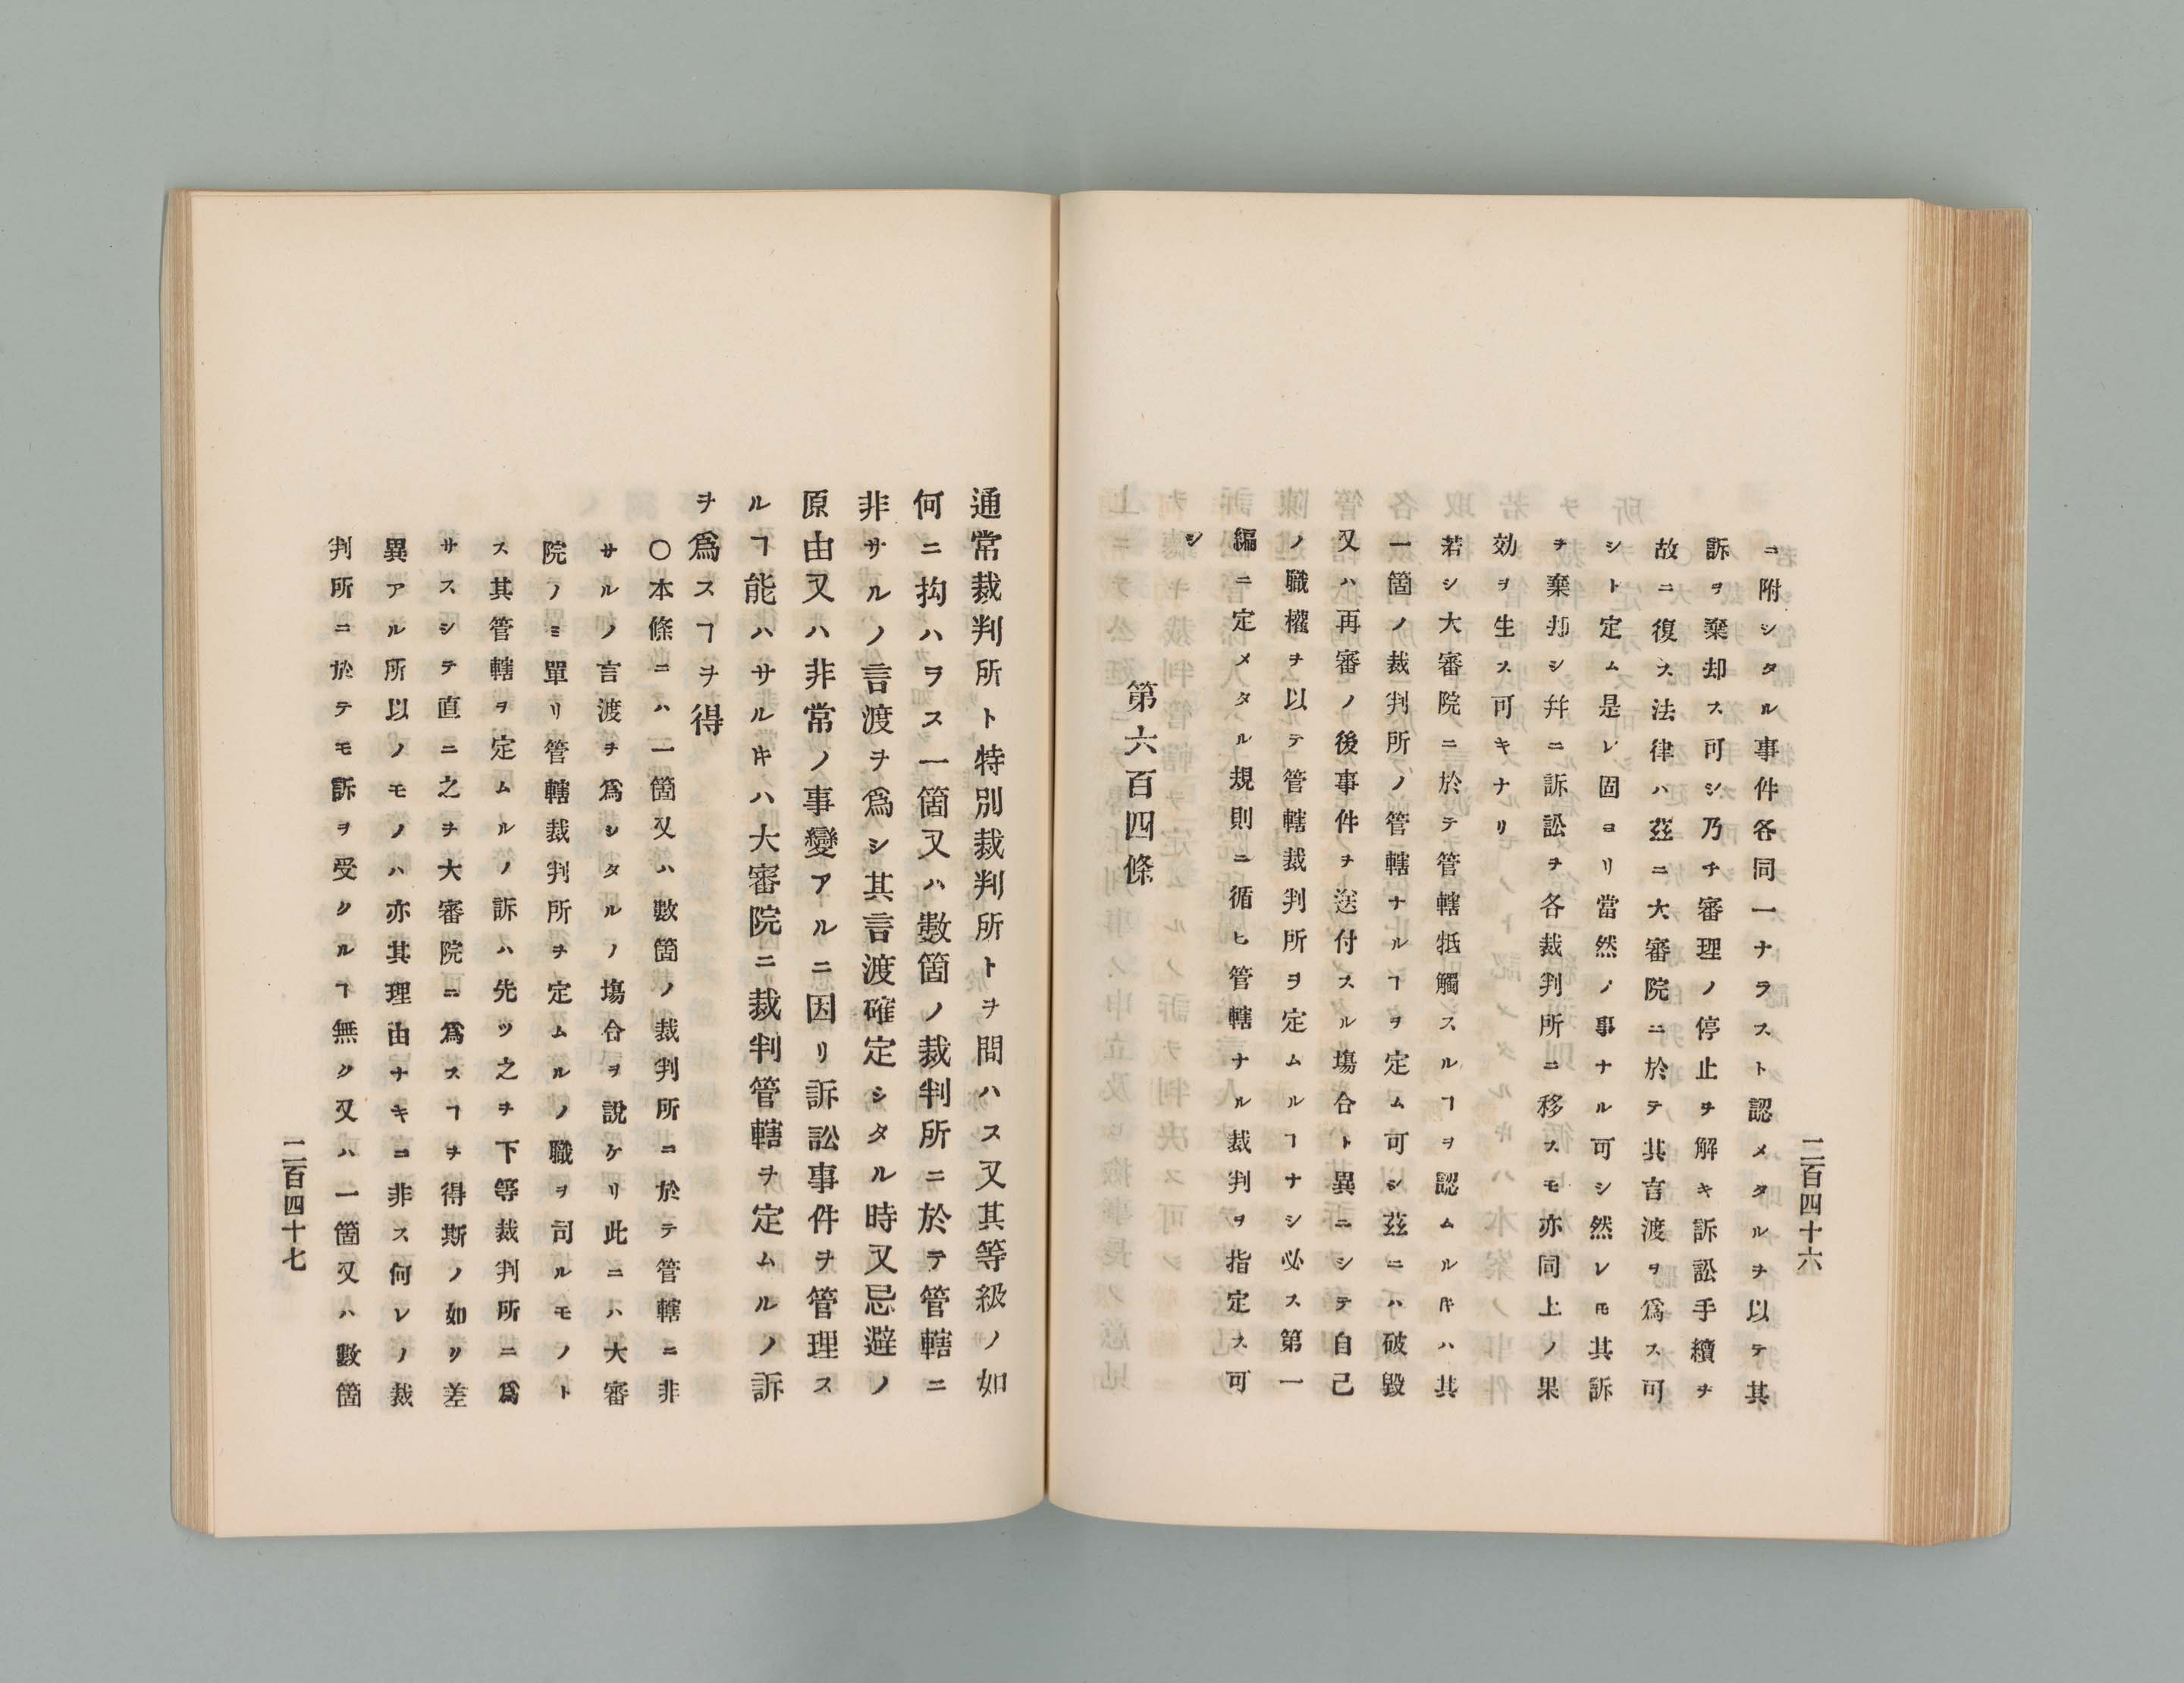 二百四十六
ニ附シタル事件各同一ナラスト認メタルヲ以テ其
訴ヲ棄却ス可シ乃チ審理ノ停止ヲ解キ訴訟手續ヲ
故ニ復ス法律ハ茲ニ大審院ニ於テ其言渡ヲ爲ス可
シト定ム是レ固ヨリ當然ノ事ナル可シ然レ𪜈其訴
ヲ棄却シ幷ニ訴訟ヲ各裁判所ニ移スモ亦同上ノ果
効ヲ生ス可キナリ
若シ大審院ニ於テ管轄牴觸スルヿヲ認ムル𪜈ハ其
一箇ノ裁判所ノ管轄ナルヿヲ定ム可シ茲ニハ破毀
又ハ再審ノ後事件ヲ送付スル塲合ト異ニシテ自己
ノ職權ヲ以テ管轄裁判所ヲ定ムルヿナシ必ス第一
編ニ定メタル規則ニ循ヒ管轄ナル裁判ヲ指定ス可
シ
第六百四條
通常裁判所ト特別裁判所トヲ問ハス又其等級ノ如
何ニ拘ハラス一箇又ハ數箇ノ裁判所ニ於テ管轄ニ
非サルノ言渡ヲ爲シ其言渡確定シタル時又忌避ノ
原由又ハ非常ノ事變アルニ因リ訴訟事件ヲ管理ス
ルヿ能ハサル𪜈ハ大審院ニ裁判管轄ヲ定ムルノ訴
ヲ爲スヿヲ得
〇本條ニハ一箇又ハ數箇ノ裁判所ニ於テ管轄ニ非
サルノ言渡ヲ爲シタルノ塲合ヲ說ケリ此ニハ大審
院ノミ單リ管轄裁判所ヲ定ムルノ職ヲ司ルモノト
ス其管轄ヲ定ムルノ訴ハ先ツ之ヲ下等裁判所ニ爲
サスシテ直ニ之ヲ大審院ニ爲スヿヲ得斯ノ如リ差
異アル所以ノモノハ亦其理由ナキニ非ス何レノ裁
判所ニ於テモ訴ヲ受クルヿ無ク又ハ一箇又ハ數箇
二百四十七